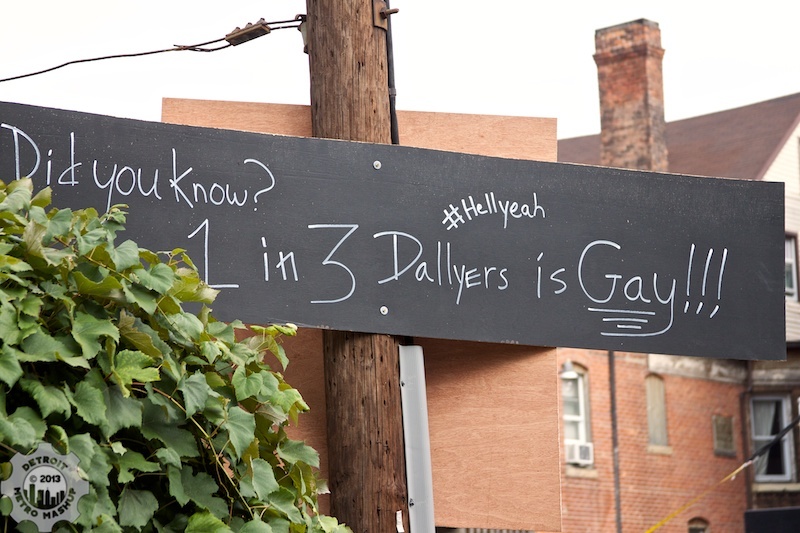 Did you know?
#Hellyeah
1 in 3 Dallyers is Gay!!!
DETROIT
© 2013
METRO MASHUP